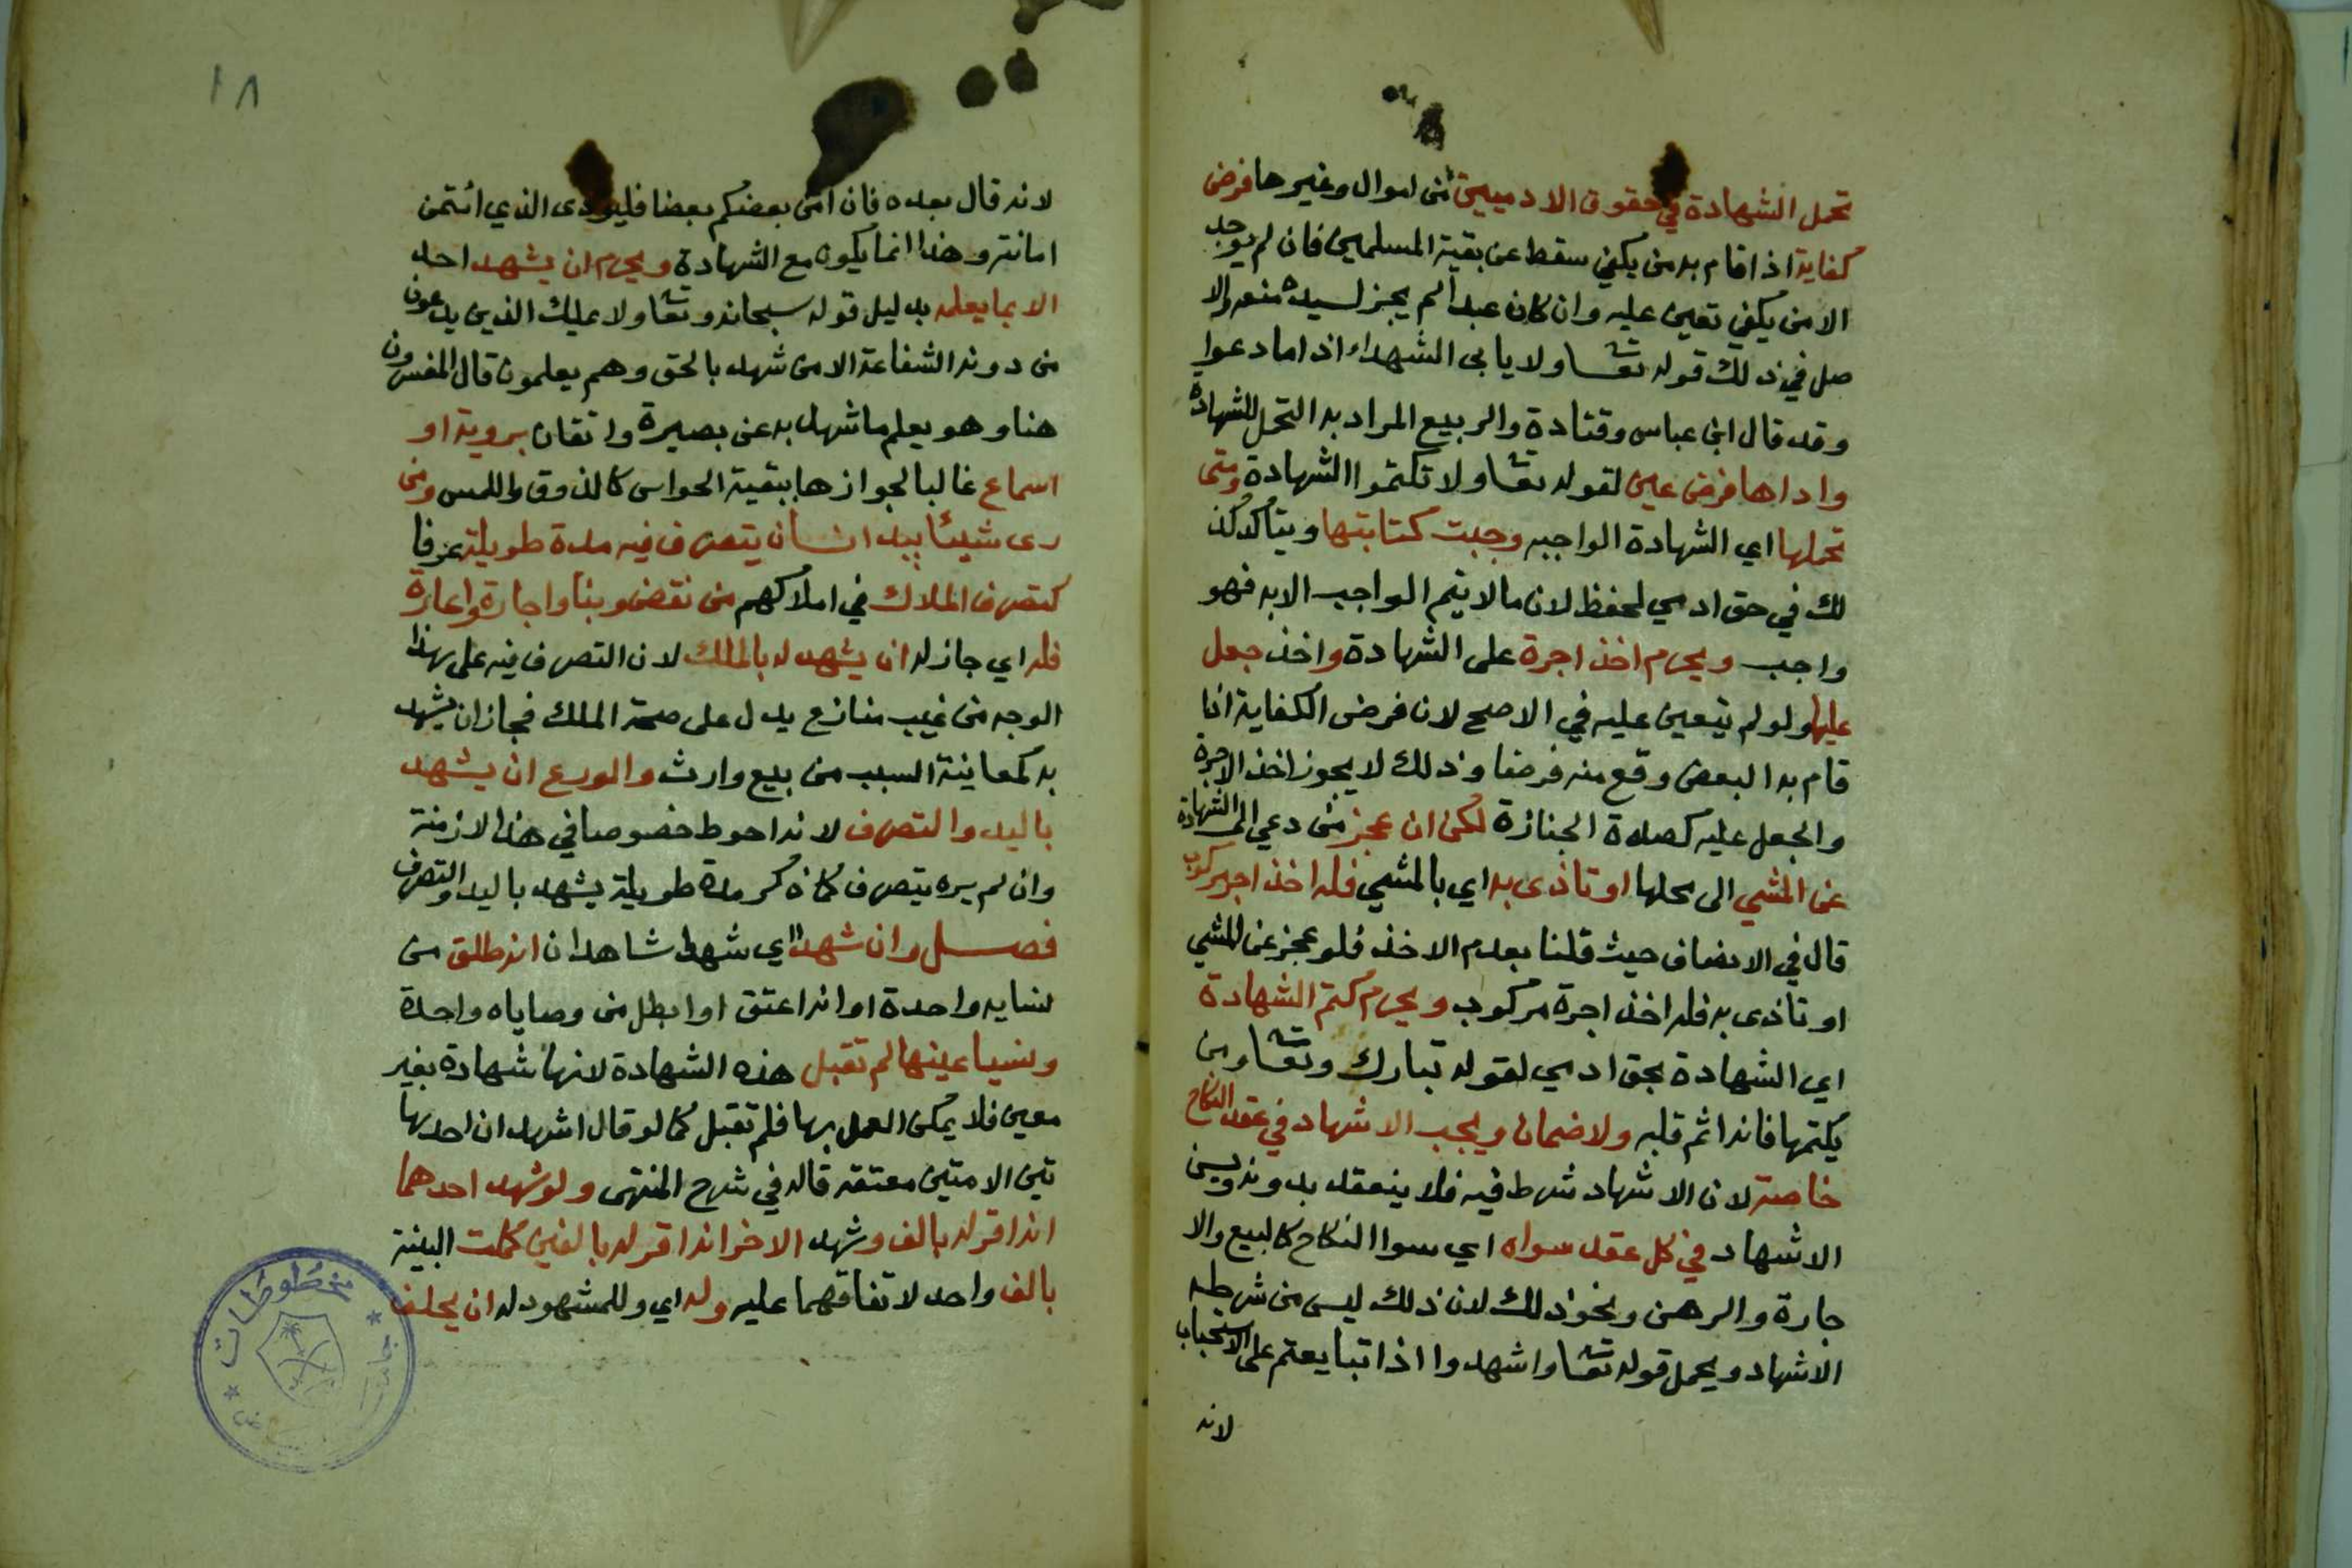 تحمل الشهادة في حقوق الادميين من اموال وغيرها فرض
كفاية اذا قام به من يكفي سقط عن بقية المسلمين فان لم يوجد
الا من يكفي تعين عليه وان كان عبدا لم يجز لسيده منعه والا
صل في ذلك قوله تعا ولا يابى الشهداء اذا ما دعوا
وقد قال ابن عباس وقتادة والربيع المراد به التحمل للشهادة
واداها فرض عين لقوله تعا ولا تكتموا الشهادة ومتى
تحملها اي الشهادة الواجبه وجبت كتابتها ويتاكد ذ
لك في حق ادمي لحفظ لان ما لا يتم الواجب الا به فهو
واجب ويحرم اخذ اجرة على الشهادة واخذ جعل
عليها ولو لم يتعين عليه في الاصح لان فرض الكفاية اذا
قام به البعض وقع منه فرضا وذلك لا يجوز اخذ الاجرة
والجعل عليه كصلاة الجنازة لكن ان عجز من دعي الى الشهادة
عن المشي الى محلها او تاذى به اي بالمشي فله اخذ اجر مركوب
قال في الانصاف حيث قلنا بعدم الاخذ فلو عجز عن المشي
او تاذى به فله اخذ اجرة مركوب ويحرم كتم الشهادة
اي الشهادة بحق ادمي لقوله تبارك وتعا ومن
يكتمها فانه اثم قلبه ولا ضمان ويجب الاشهاد في عقد النكاح
خاصة لان الاشهاد شرط فيه فلا ينعقد بدونه ويسن
الاشهاد في كل عقد سواه اي سوا النكاح كالبيع والا
جارة والرهن ونحو ذلك لان ذلك ليس من شرطه
الاشهاد ويحمل قوله تعا واشهدوا اذا تبايعتم على الاستحباب
لانه
١٨
لانه قال بعده فان امن بعضكم بعضا فليودى الذي ائتمن
امانته وهذا انما يكون مع الشهادة ويحرم ان يشهد احد
الا بما يعلمه بدليل قوله سبحانه وتعا ولا يملك الذين يدعون
من دونه الشفاعة الا من شهد بالحق وهم يعلمون قال المفسرون
هنا وهو يعلم ما شهد به عن بصيرة واتقان بروية او
اسماع غالبا لجوازها ببقية الحواس كالذوق واللمس ومن
رى شيئا بيد انسان يتصرف فيه مدة طويلة عرفا
كتصرف الملاك في املاكهم من نقض وبنا واجارة واعارة
فله اي جاز له ان يشهد له بالملك لان التصرف فيه على هذا
الوجه من غيب منازع يدل على صحة الملك فجاز ان يشهد
به كمعاينة السبب من بيع وارث والورع ان يشهد
باليد والتصرف لانه احوط خصوصا في هذا الازمنة
وان لم يره يتصرف كما ذكر مدة طويلة يشهد باليد والتصرف
فصل وان شهدا اي شهد شاهدان انه طلق من
نسايه واحدة او انه اعتق او ابطل من وصاياه واحدة
ونسيا عينها لم تقبل هذه الشهادة لانها شهادة بغير
معين فلا يمكن العمل بها فلم تقبل كما لو قال اشهد ان احد ها
تين الامتين معتقه قاله في شرح المنتهى ولو شهد احدهما
انه اقر له بالف وشهد الاخر انه اقر له بالفين كملت البينة
بالف واحد لاتفاقهما عليه وله اي وللمشهود له ان يحلف
مخطوطات
جامعة